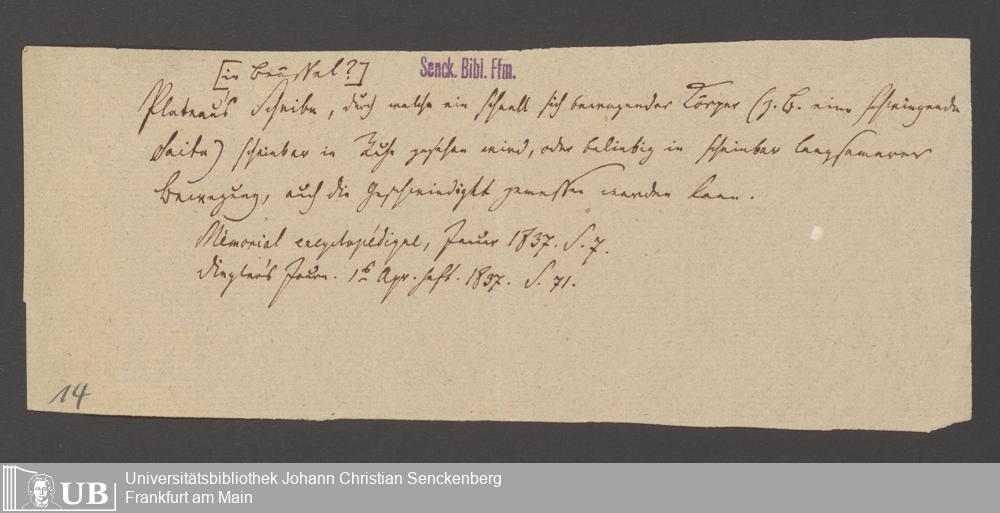 [in Brüssel?]
Senck. Bibl. Ffm.
Plateau's Scheibe, durch welche ein schnell sich bewegender Körper (z. B. eine schwingende
Saite) scheinbar in Ruhe gesehen wird, oder beliebig in scheinbar langsamerer
Bewegung, auch die Geschwindigkt gemessen werden kann.
Mémorial encyclopédique, Januar 1837. S. 7.
Dingler's Journ. 1s Apr. heft. 1837. S. 71.
14
UB
Universitätsbibliothek Johann Christian Senckenberg
Frankfurt am Main